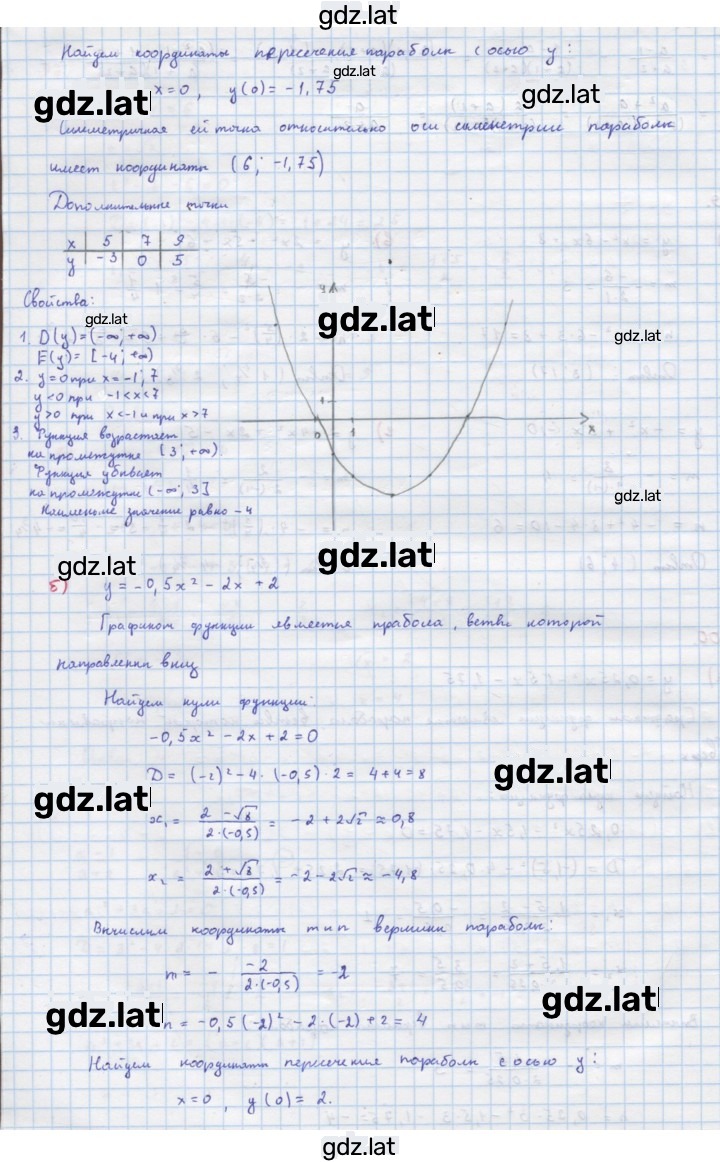 gdz.lat
Найдем координаты пересечения параболы с осью y:
gdz.lat
x=0, y(0) = -1,75
gdz.lat
gdz.lat
Симметричная ей точка относительно оси симметрии параболы
имеет координаты (6; -1,75)
Дополнительные точки
x | 5 | 7 | 9
y | -3 | 0 | 5
Свойства:
gdz.lat
1. D(y)=(-∞; +∞)
E(y)= [-4; +∞)
2. y=0 при x=-1; 7
y<0 при -1<x<7
y>0 при x<-1 и при x>7
3. Функция возрастает
на промежутке [3; +∞)
Функция убывает
на промежутке (-∞; 3]
Наименьше значение равно -4
y
gdz.lat
gdz.lat
1
0 1 x
gdz.lat
gdz.lat
gdz.lat
б) y=-0,5x² - 2x +2
Графиком функции является прабола, ветви которой
направлены вниз
Найдем нули функции:
-0,5x² - 2x +2 = 0
gdz.lat
D = (-2)² - 4·(-0,5)·2 = 4+4=8
gdz.lat
x₁ = (2 - √8)/(2·(-0,5)) = -2 + 2√2 ≈ 0,8
x₂ = (2 + √8)/(2·(-0,5)) = -2 - 2√2 ≈ -4,8
Вычислим координаты m и n вершины параболы:
m = - (-2)/(2·(-0,5)) = -2
gdz.lat
gdz.lat
n = -0,5(-2)² - 2·(-2) + 2 = 4
Найдем координаты пересечения параболы с осью y:
x=0, y(0) = 2.
gdz.lat